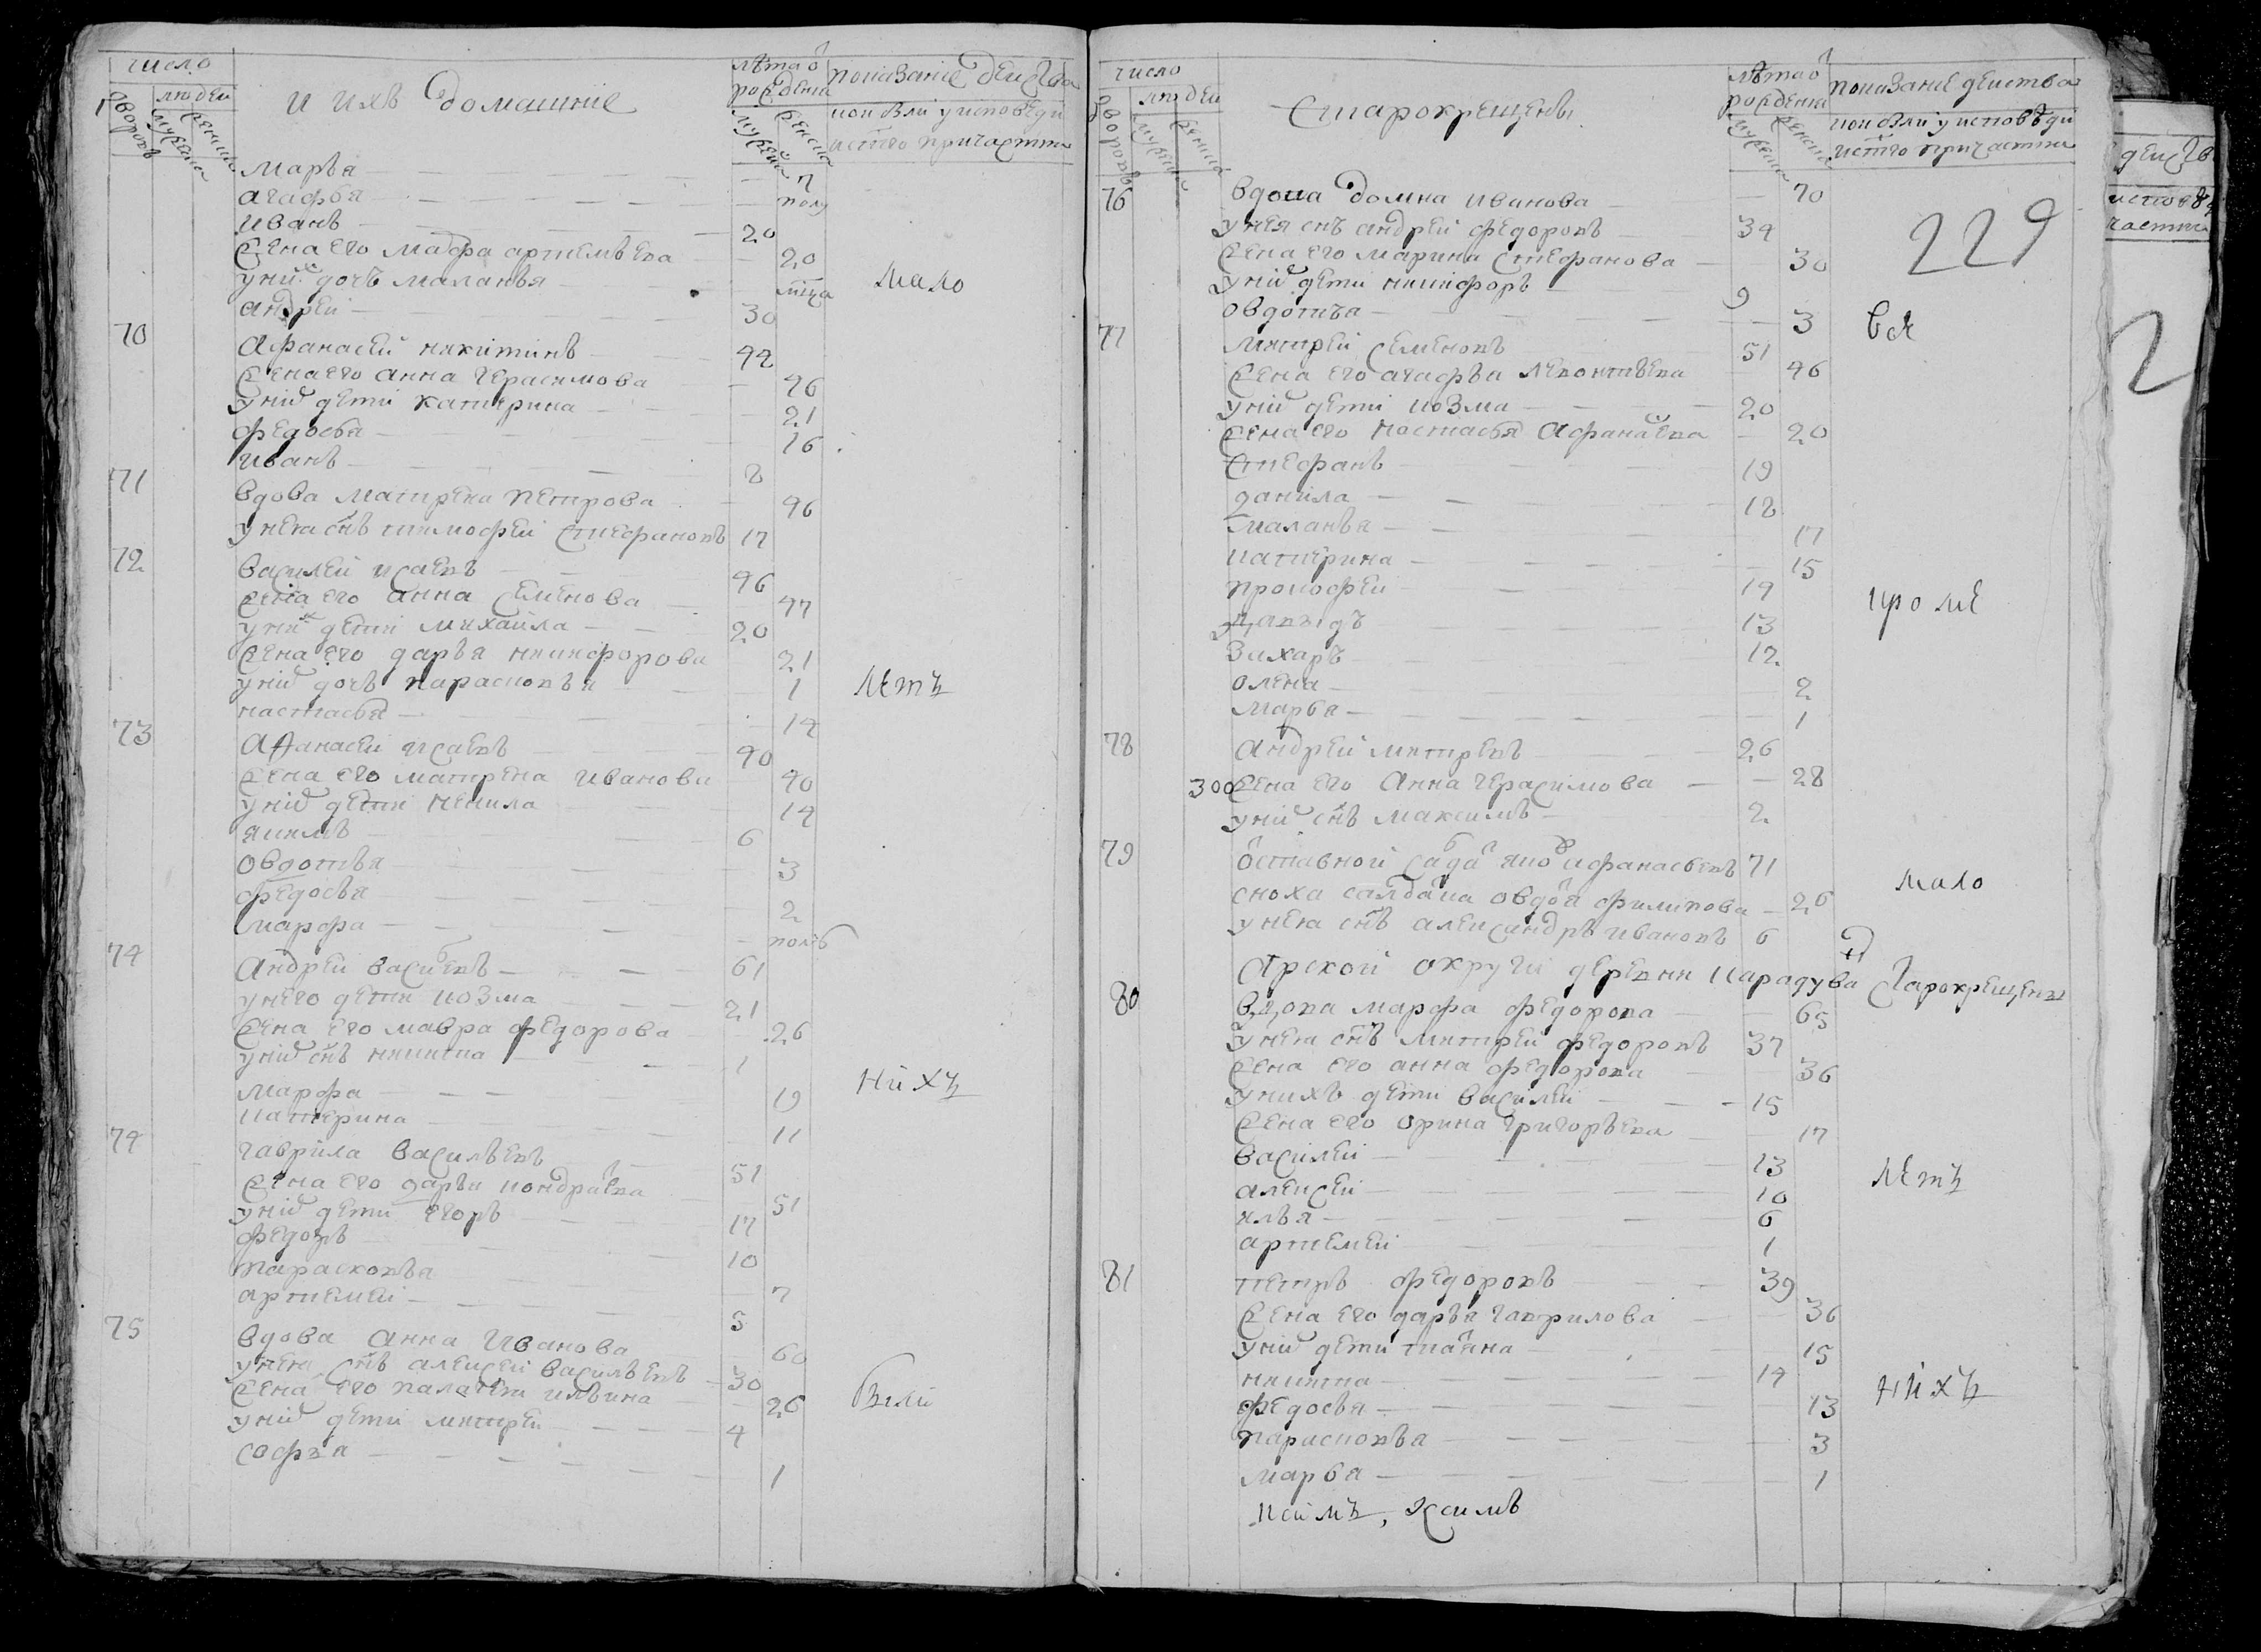 число
дворовъ
людей
мужеска
женска
и ихъ домашние
лѣта о рождени
мужеска
женска
показание действа
кои были у исповеди
и стго причастия
Марья — 7
агафья — полу
иванъ — 20
жена его марфа артемьева — 20
у ни дочь маланья — мца
андрей — 30
мало
70
Афанасей никитинъ — 42
жена его анна герасимова — 46
у ни дети катерина — 21
федосья — 16
иванъ — 8
71
вдова матрена петрова — 46
у нея снъ тимофей стефановъ 17
72
василей исаевъ — 46
жена его анна семенова — 47
у ни дети михайла — 20
жена его дарья никифорова 21
у ни дочь парасковья — 1
настасья — 14
летъ
73
Афанасей исаевъ — 40
жена его матрена иванова 40
у ни дети ненила — 14
якимъ — 6
овдотья — 3
федосья — 2
марфа — полъ
74
андрей васиевъ — 61
у него дети козма — 21
жена его мавра федорова — 26
у ни снъ никита — 1
марфа — 19
катерина — 11
нихъ
74
гаврила васильевъ — 51
жена его дарья кондраева — 51
у ни дети егоръ — 17
федоръ — 10
парасковья — 7
артемей — 5
75
вдова анна иванова — 60
у нея снъ алексей васильевъ — 30
жена его палагея ильина — 26
у ни дети митрей — 4
софья — 1
были
число
дворовъ
людей
мужеска
женска
старокрещены
лѣта о рождени
мужеска
женска
показание действа
кои были у исповѣди
и стго причастия
229
76
вдова домна иванова — 70
у нея снъ андрей федоровъ — 34
жена его марина стефанова — 30
у ни дети никифоръ — 9
овдотья — 3
вся
77
митрей семеновъ 51
жена его агафья леонтьева 46
у ни дети козма — 20
жена его настасья афанаева — 20
стефанъ — 19
данила — 18
маланья — 17
катерина — 15
прокофей — 14
давыдъ — 13
захаръ — 12
олена — 2
марья — 1
кроме
78
андрей митревъ — 26
300 жена его анна герасимова — 28
у ни снъ максимъ — 2
79
оставной садa яко афанасьевъ 71
сноха салдака овдоя филипова — 26
у нея снъ александръ ивановъ 6
мало
Арской округи деревни карадува старокрещены
80
вдова марфа федорова — 65
у нея снъ митрей федоровъ 37
жена его анна федорова — 36
у нихъ дети василей — 15
жена его орина григорьева — 17
василей — 13
алексей — 10
илья — 6
артемей — 1
летъ
81
петръ федоровъ — 39
жена его дарья гаврилова — 36
у ни дети таяна — 15
никита — 14
федосья — 13
парасковья — 3
марья — 1
нихъ